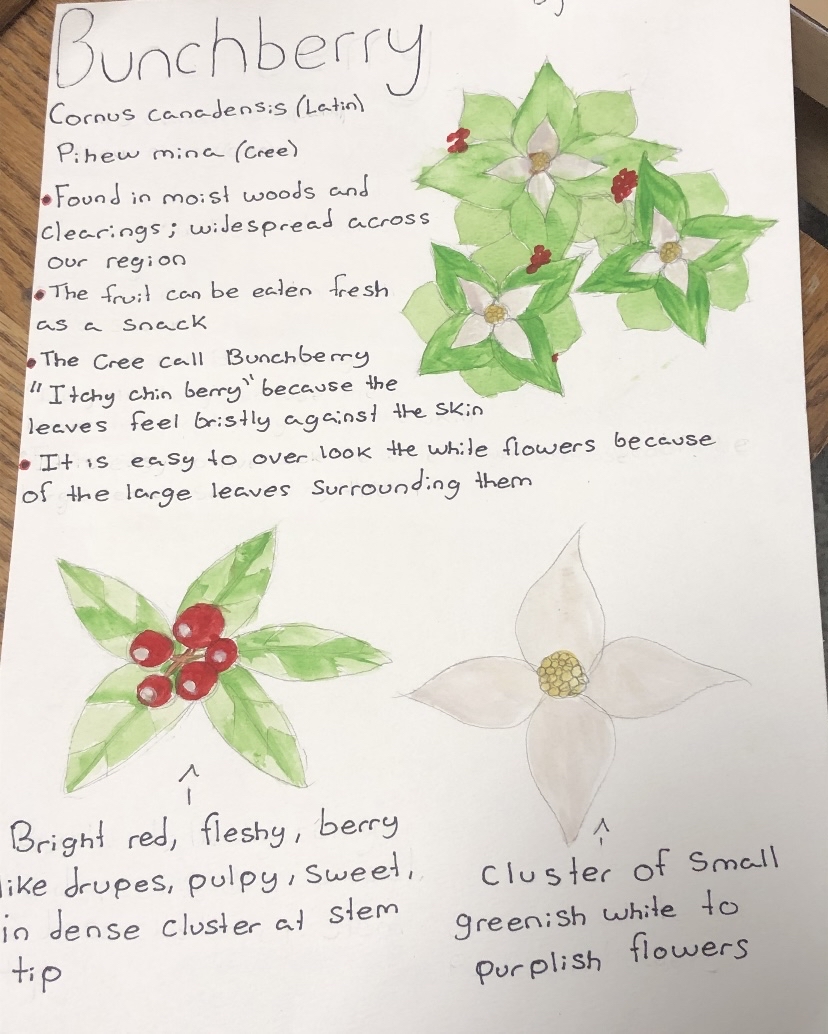 Bunchberry
Cornus canadensis (Latin)
Pihew mina (Cree)
• Found in moist woods and
clearings; widespread across
our region
• The fruit can be eaten fresh
as a snack
• The Cree call Bunchberry
"Itchy chin berry" because the
leaves feel bristly against the skin
• It is easy to over look the white flowers because
of the large leaves surrounding them
Bright red, fleshy, berry
like drupes, pulpy, sweet,
in dense cluster at stem
tip
Cluster of small
greenish white to
purplish flowers